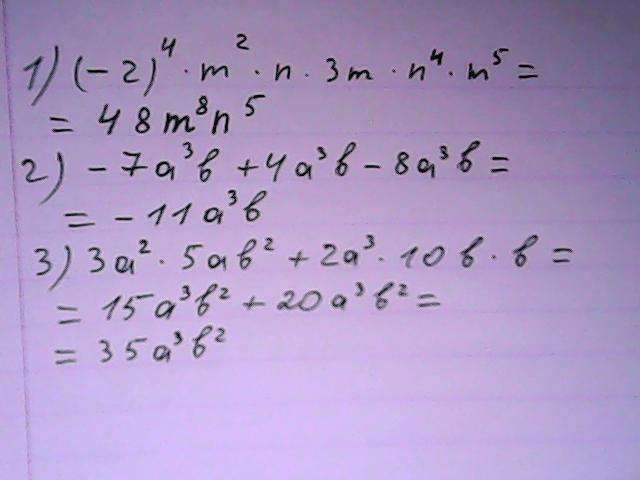 1) (-2)⁴ · m² · n · 3m · n⁴ · m⁵ =
= 48m⁸n⁵
2) -7a³b + 4a³b - 8a³b =
= -11a³b
3) 3a² · 5ab² + 2a³ · 10b · b =
= 15a³b² + 20a³b² =
= 35a³b²